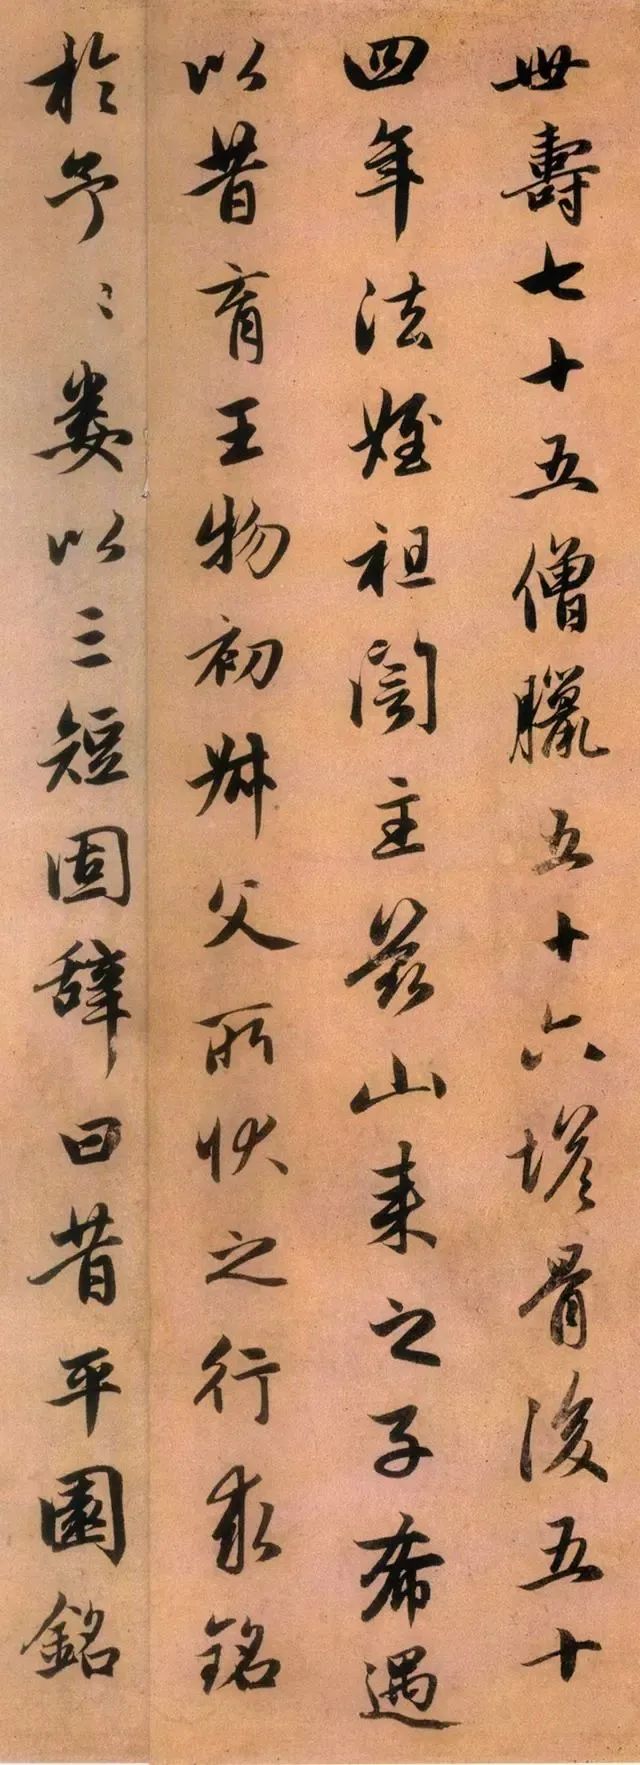 世壽七十五僧臘五十六塔骨後五十
四年法姪祖訚主茲山来之子希遇
以昔育王物初叔父所状之行求銘
於予〻娄以三短固辞曰昔平園銘